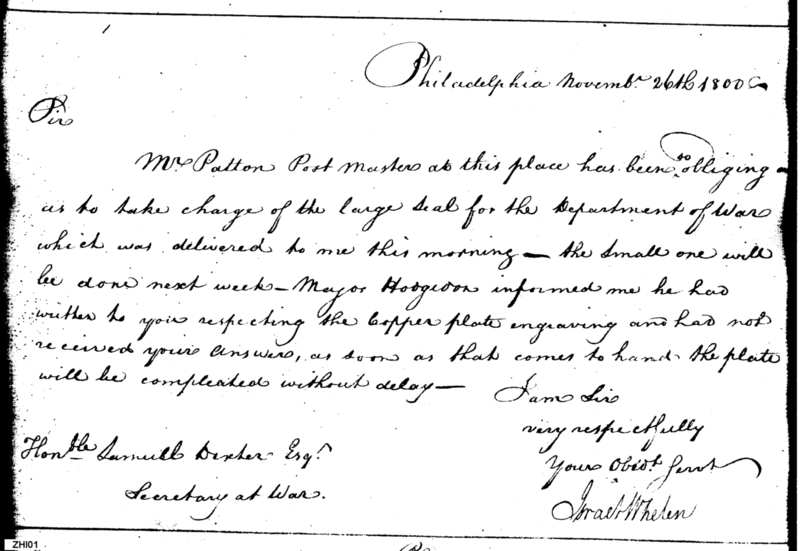 Philadelphia Novembr. 26th 1800
Sir
Mr. Patton Post Master at this place has been so obliging
as to take charge of the large Seal for the Department of War
which was delivered to me this morning — the Small one will
be done next week — Major Hodgsdon informed me he had
written to you respecting the Copper plate engraving and had not
received your answer, as soon as that comes to hand the plate
will be compleated without delay —
I am Sir
very respectfully
Your Obedt. Servt
Israel Whelen
Honble Samuell Dexter Esqr.
Secretary at War.
ZHI01